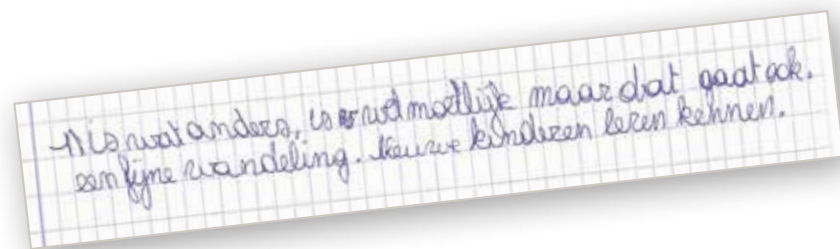 - 't is wat anders, is wel moeilijk maar dat gaat ook.
een fijne wandeling. Nieuwe kinderen leren kennen.